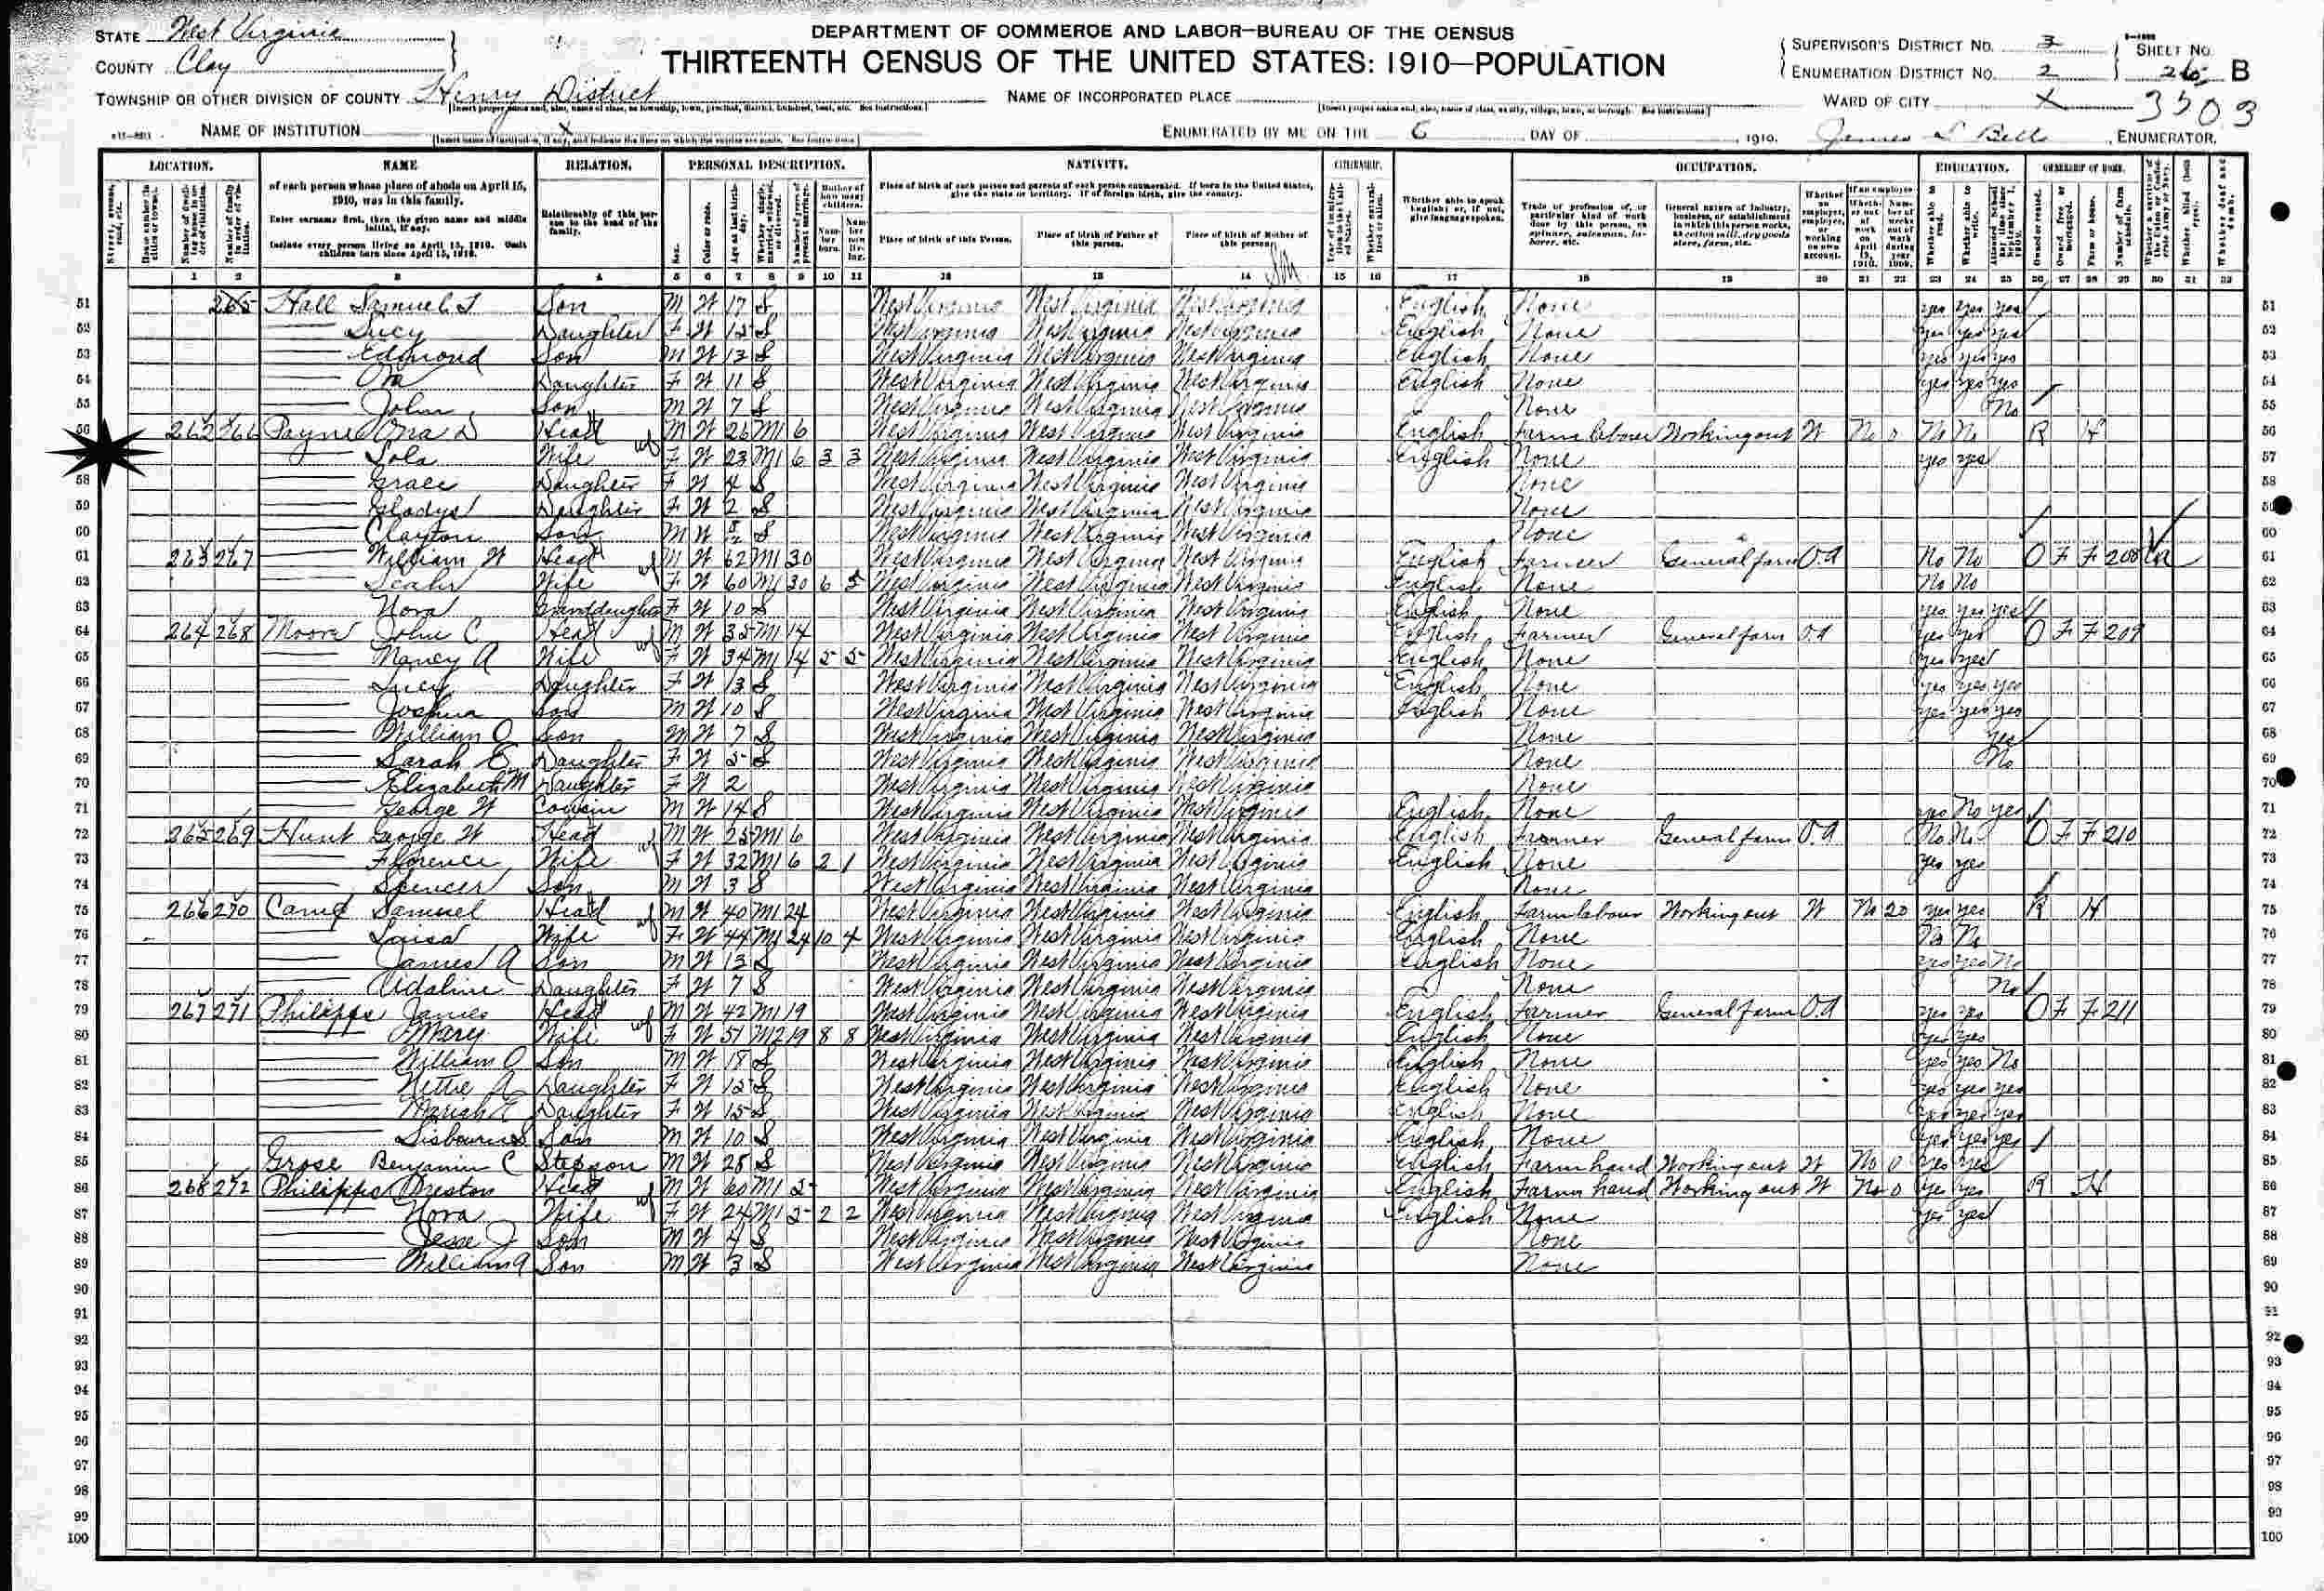 DEPARTMENT OF COMMERCE AND LABOR—BUREAU OF THE CENSUS
THIRTEENTH CENSUS OF THE UNITED STATES: 1910—POPULATION
STATE West Virginia
COUNTY Clay
TOWNSHIP OR OTHER DIVISION OF COUNTY Henry District
NAME OF INCORPORATED PLACE
NAME OF INSTITUTION X
ENUMERATED BY ME ON THE 6 DAY OF , 1910.
SUPERVISOR'S DISTRICT NO. 3
ENUMERATION DISTRICT NO. 2
SHEET NO. B
WARD OF CITY X
3503
James S Bell , ENUMERATOR.
LOCATION. NAME RELATION. PERSONAL DESCRIPTION. NATIVITY. CITIZENSHIP. OCCUPATION. EDUCATION. OWNERSHIP OF HOME.
of each person whose place of abode on April 15, 1910, was in this family.
Enter surname first, then the given name and middle initial, if any.
Include every person living on April 15, 1910. Omit children born since April 15, 1910.
Relationship of this person to the head of the family.
Place of birth of each person and parents of each person enumerated. If born in the United States, give the state or territory. If of foreign birth, give the country.
Place of birth of this Person. Place of birth of Father of this person. Place of birth of Mother of this person.
Whether able to speak English; or, if not, give language spoken.
1 2 3 4 5 6 7 8 9 10 11 12 13 14 15 16 17 18 19 20 21 22 23 24 25 26 27 28 29 30 31 32
51 265 Hall Samuel Son M W 17 S West Virginia West Virginia West Virginia English None yes yes yes 51
52 Lucy Daughter F W 15 S West Virginia West Virginia West Virginia English None yes yes yes 52
53 Edmond Son M W 13 S West Virginia West Virginia West Virginia English None yes yes yes 53
54 Ora Daughter F W 11 S West Virginia West Virginia West Virginia English None yes yes yes 54
55 John Son M W 7 S West Virginia West Virginia West Virginia None No 55
56 262 266 Payne Ora D Head M W 26 M1 6 West Virginia West Virginia West Virginia English Farm labour Working out W No 0 No No R H 56
Lola Wife F W 23 M1 6 3 3 West Virginia West Virginia West Virginia English None yes yes 57
58 Grace Daughter F W 4 S West Virginia West Virginia West Virginia None 58
59 Gladys Daughter F W 2 S West Virginia West Virginia West Virginia None
60 Clayton Son M W S West Virginia West Virginia West Virginia None 60
61 263 267 William W Head M W 62 M1 30 West Virginia West Virginia West Virginia English Farmer General farm O.A No No O F F 208 61
62 Leahr Wife F W 60 M1 30 6 5 West Virginia West Virginia West Virginia English None No No 62
63 Nora Granddaughter F W 10 S West Virginia West Virginia West Virginia English None yes yes yes 63
64 264 268 Moore John C Head M W 35 M1 14 West Virginia West Virginia West Virginia English Farmer General farm O.A yes yes O F F 209 64
65 Nancy A Wife F W 34 M1 14 5 5 West Virginia West Virginia West Virginia English None yes yes 65
66 Lucy Daughter F W 13 S West Virginia West Virginia West Virginia English None yes yes yes 66
67 Joshua Son M W 10 S West Virginia West Virginia West Virginia English None yes yes yes 67
68 William O Son M W 7 S West Virginia West Virginia West Virginia None yes 68
69 Sarah E Daughter F W 5 S West Virginia West Virginia West Virginia None No 69
70 Elizabeth M Daughter F W 2 West Virginia West Virginia West Virginia None 70
71 George W Cousin M W 14 S West Virginia West Virginia West Virginia English None yes No yes 71
72 265 269 Hunt George W Head M W 25 M1 6 West Virginia West Virginia West Virginia English Farmer General farm O.A No No O F F 210 72
73 Florence Wife F W 32 M1 6 2 1 West Virginia West Virginia West Virginia English None yes yes 73
74 Spencer Son M W 3 S West Virginia West Virginia West Virginia None 74
75 266 270 Samuel Head M W 40 M1 24 West Virginia West Virginia West Virginia English Farm labour Working out W No 20 yes yes R H 75
76 Laisa Wife F W 44 M1 24 10 4 West Virginia West Virginia West Virginia English None No No 76
77 James A Son M W 13 S West Virginia West Virginia West Virginia English None yes yes No 77
78 Adaline Daughter F W 7 S West Virginia West Virginia West Virginia None No 78
79 267 271 Philipps James Head M W 42 M1 19 West Virginia West Virginia West Virginia English Farmer General farm O.A yes yes O F F 211 79
80 Mary Wife F W 51 M2 19 8 8 West Virginia West Virginia West Virginia English None yes yes 80
81 William O Son M W 18 S West Virginia West Virginia West Virginia English None yes yes No 81
82 Nettie A Daughter F W 15 S West Virginia West Virginia West Virginia English None yes yes yes 82
83 Mariah E Daughter F W 15 S West Virginia West Virginia West Virginia English None yes yes yes 83
84 Son M W 10 S West Virginia West Virginia West Virginia English None yes yes yes 84
85 Grose Benjamin C Stepson M W 28 S West Virginia West Virginia West Virginia English Farm hand Working out W No 0 yes yes 85
86 268 272 Philipps Preston Head M W 60 M1 5 West Virginia West Virginia West Virginia English Farm hand Working out W No 0 yes yes R H 86
87 Nora Wife F W 24 M1 5 2 2 West Virginia West Virginia West Virginia English None yes yes 87
88 Jesse J Son M W 4 S West Virginia West Virginia West Virginia None 88
89 William A Son M W 3 S West Virginia West Virginia West Virginia None 89
90 90
91 91
92 92
93 93
94 94
95 95
96 96
97 97
98 98
99 99
100 100